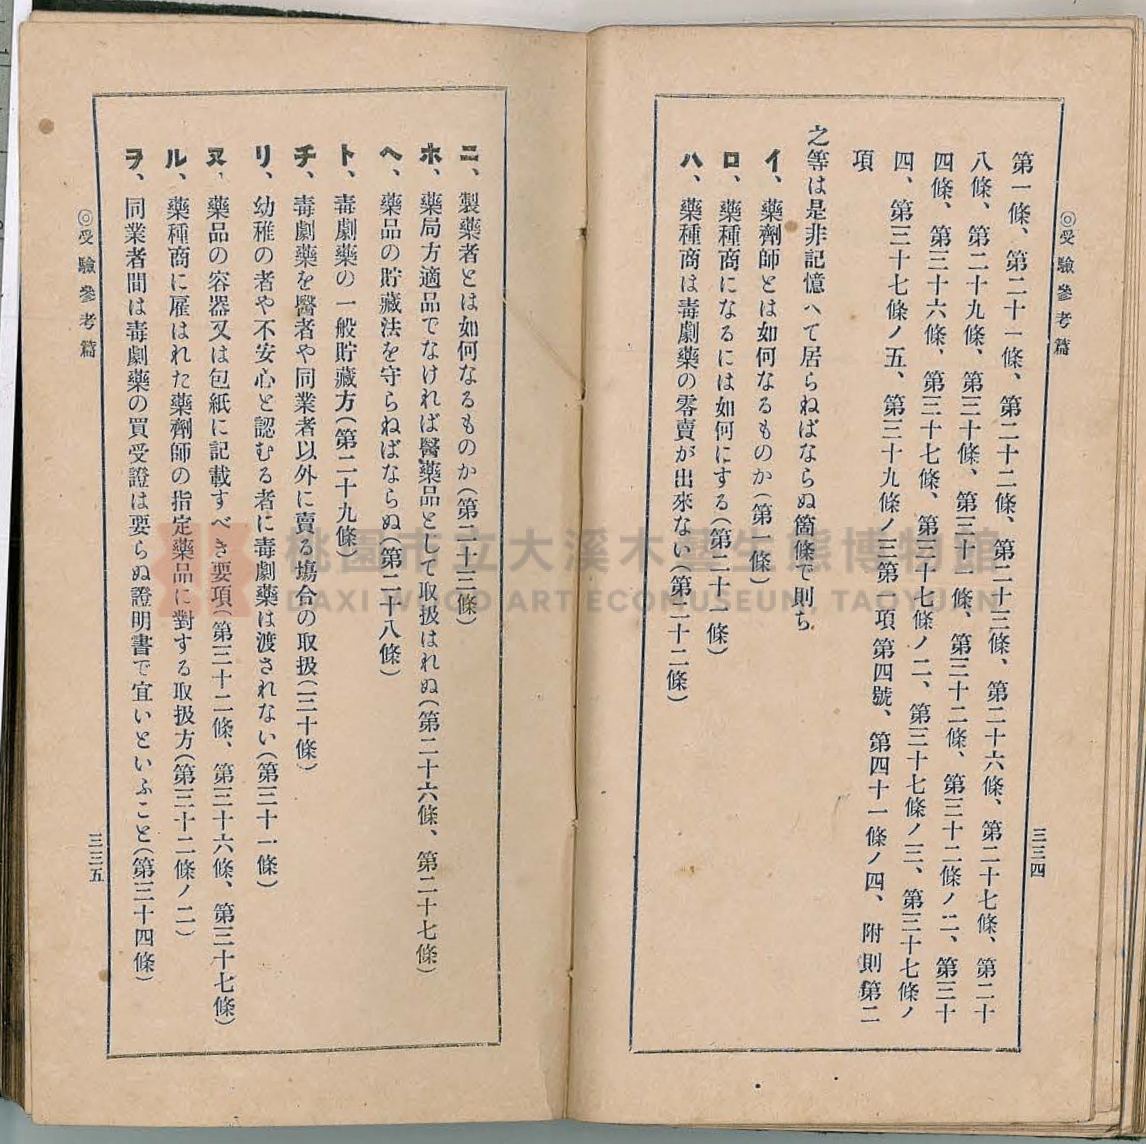 ◎受驗參考篇
三三四
第一條、第二十一條、第二十二條、第二十三條、第二十六條、第二十七條、第二十
八條、第二十九條、第三十條、第三十一條、第三十二條、第三十二條ノ二、第三十
四條、第三十六條、第三十七條、第三十七條ノ二、第三十七條ノ三、第三十七條ノ
四、第三十七條ノ五、第三十九條ノ三第一項第四號、第四十一條ノ四、附則第二
項
之等は是非記憶へて居らねばならぬ箇條で則ち
イ、藥劑師とは如何なるものか(第一條)
ロ、藥種商になるには如何にする(第二十一條)
ハ、藥種商は毒劇藥の零賣が出來ない(第二十二條)
ニ、製藥者とは如何なるものか(第二十三條)
ホ、藥局方適品でなければ醫藥品として取扱はれぬ(第二十六條、第二十七條)
ヘ、藥品の貯藏法を守らねばならぬ(第二十八條)
ト、毒劇藥の一般貯藏方(第二十九條)
チ、毒劇藥を醫者や同業者以外に賣る場合の取扱(三十條)
リ、幼稚の者や不安心と認むる者に毒劇藥は渡されない(第三十一條)
ヌ、藥品の容器又は包紙に記載すべき要項(第三十二條、第三十六條、第三十七條)
ル、藥種商に雇はれた藥劑師の指定藥品に對する取扱方(第三十二條ノ二)
ヲ、同業者間は毒劇藥の買受證は要らぬ證明書で宜いといふこと(第三十四條)
◎受驗參考篇
三三五
桃園市立大溪木藝生態博物館
DAXI WOOD ART ECOMUSEUM, TAOYUAN